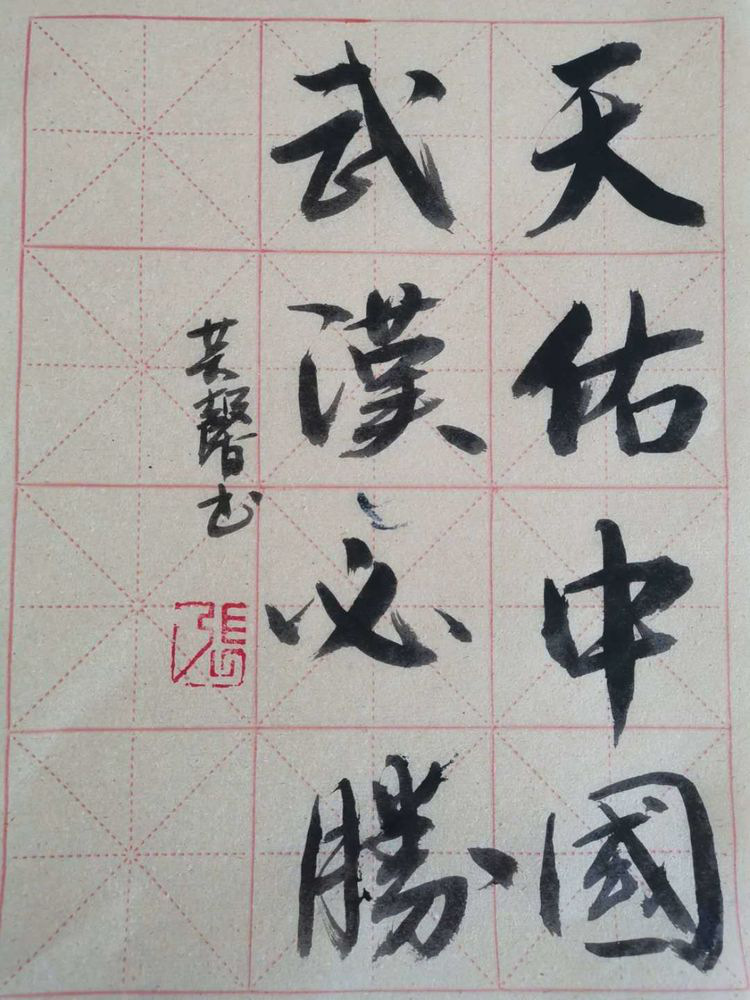 天佑中國
武漢必勝
芸馨书
張